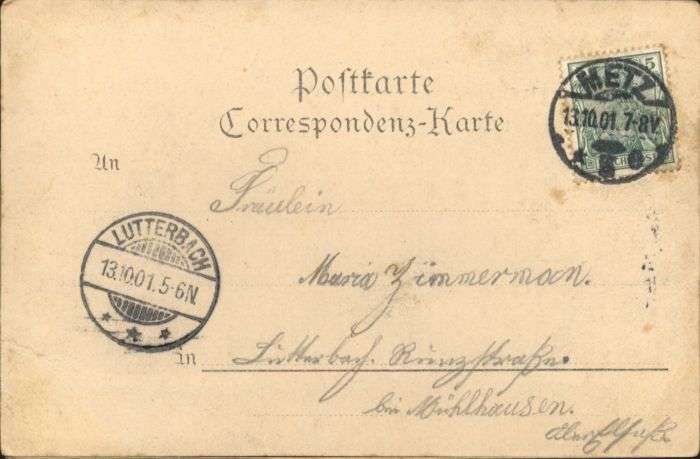 Postkarte
Correspondenz-Karte
METZ
13.10.01. 7-8V.
5
An
Fräulein
Maria Zimmerman.
LUTTERBACH
13.10.01. 5-6N.
in Lutterbach. Runzstraße.
bei Mühlhausen.
Oberelsaß.